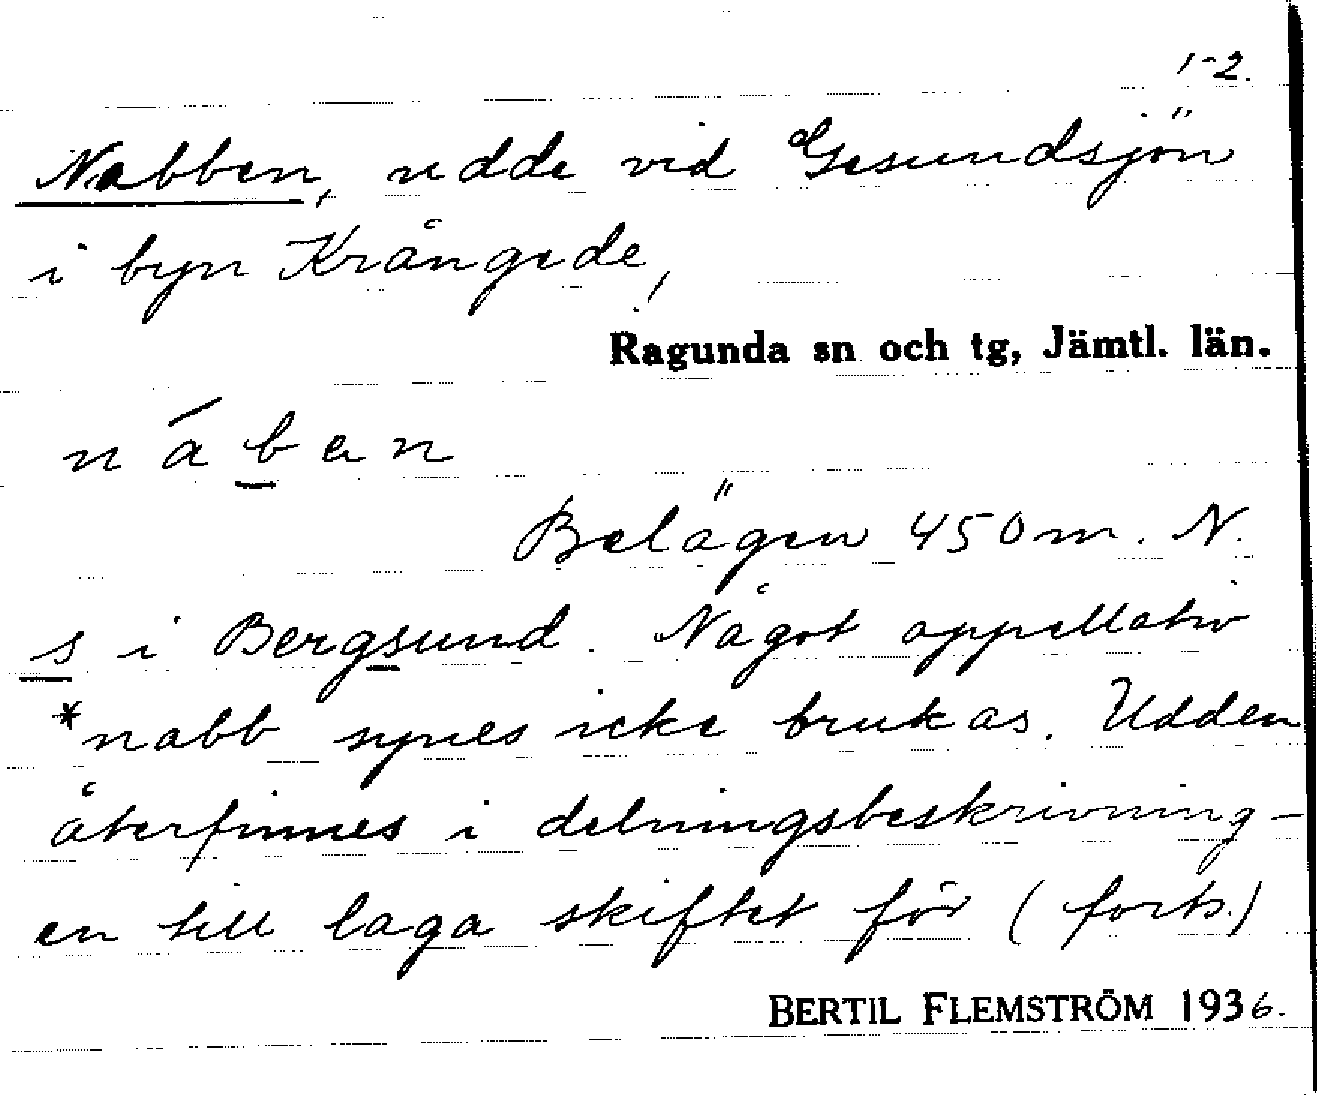 1-2.
Nabben, udde vid Gesundsjön
i byn Krångede,
Ragunda sn och tg, Jämtl. län.
náben
Belägen 450 m. N.
s i Bergsund. Något appellativ
*nabb synes icke brukas. Udden
återfinnes i delningsbeskrivning-
en till laga skiftet för (forts.)
BERTIL FLEMSTRÖM 1936.